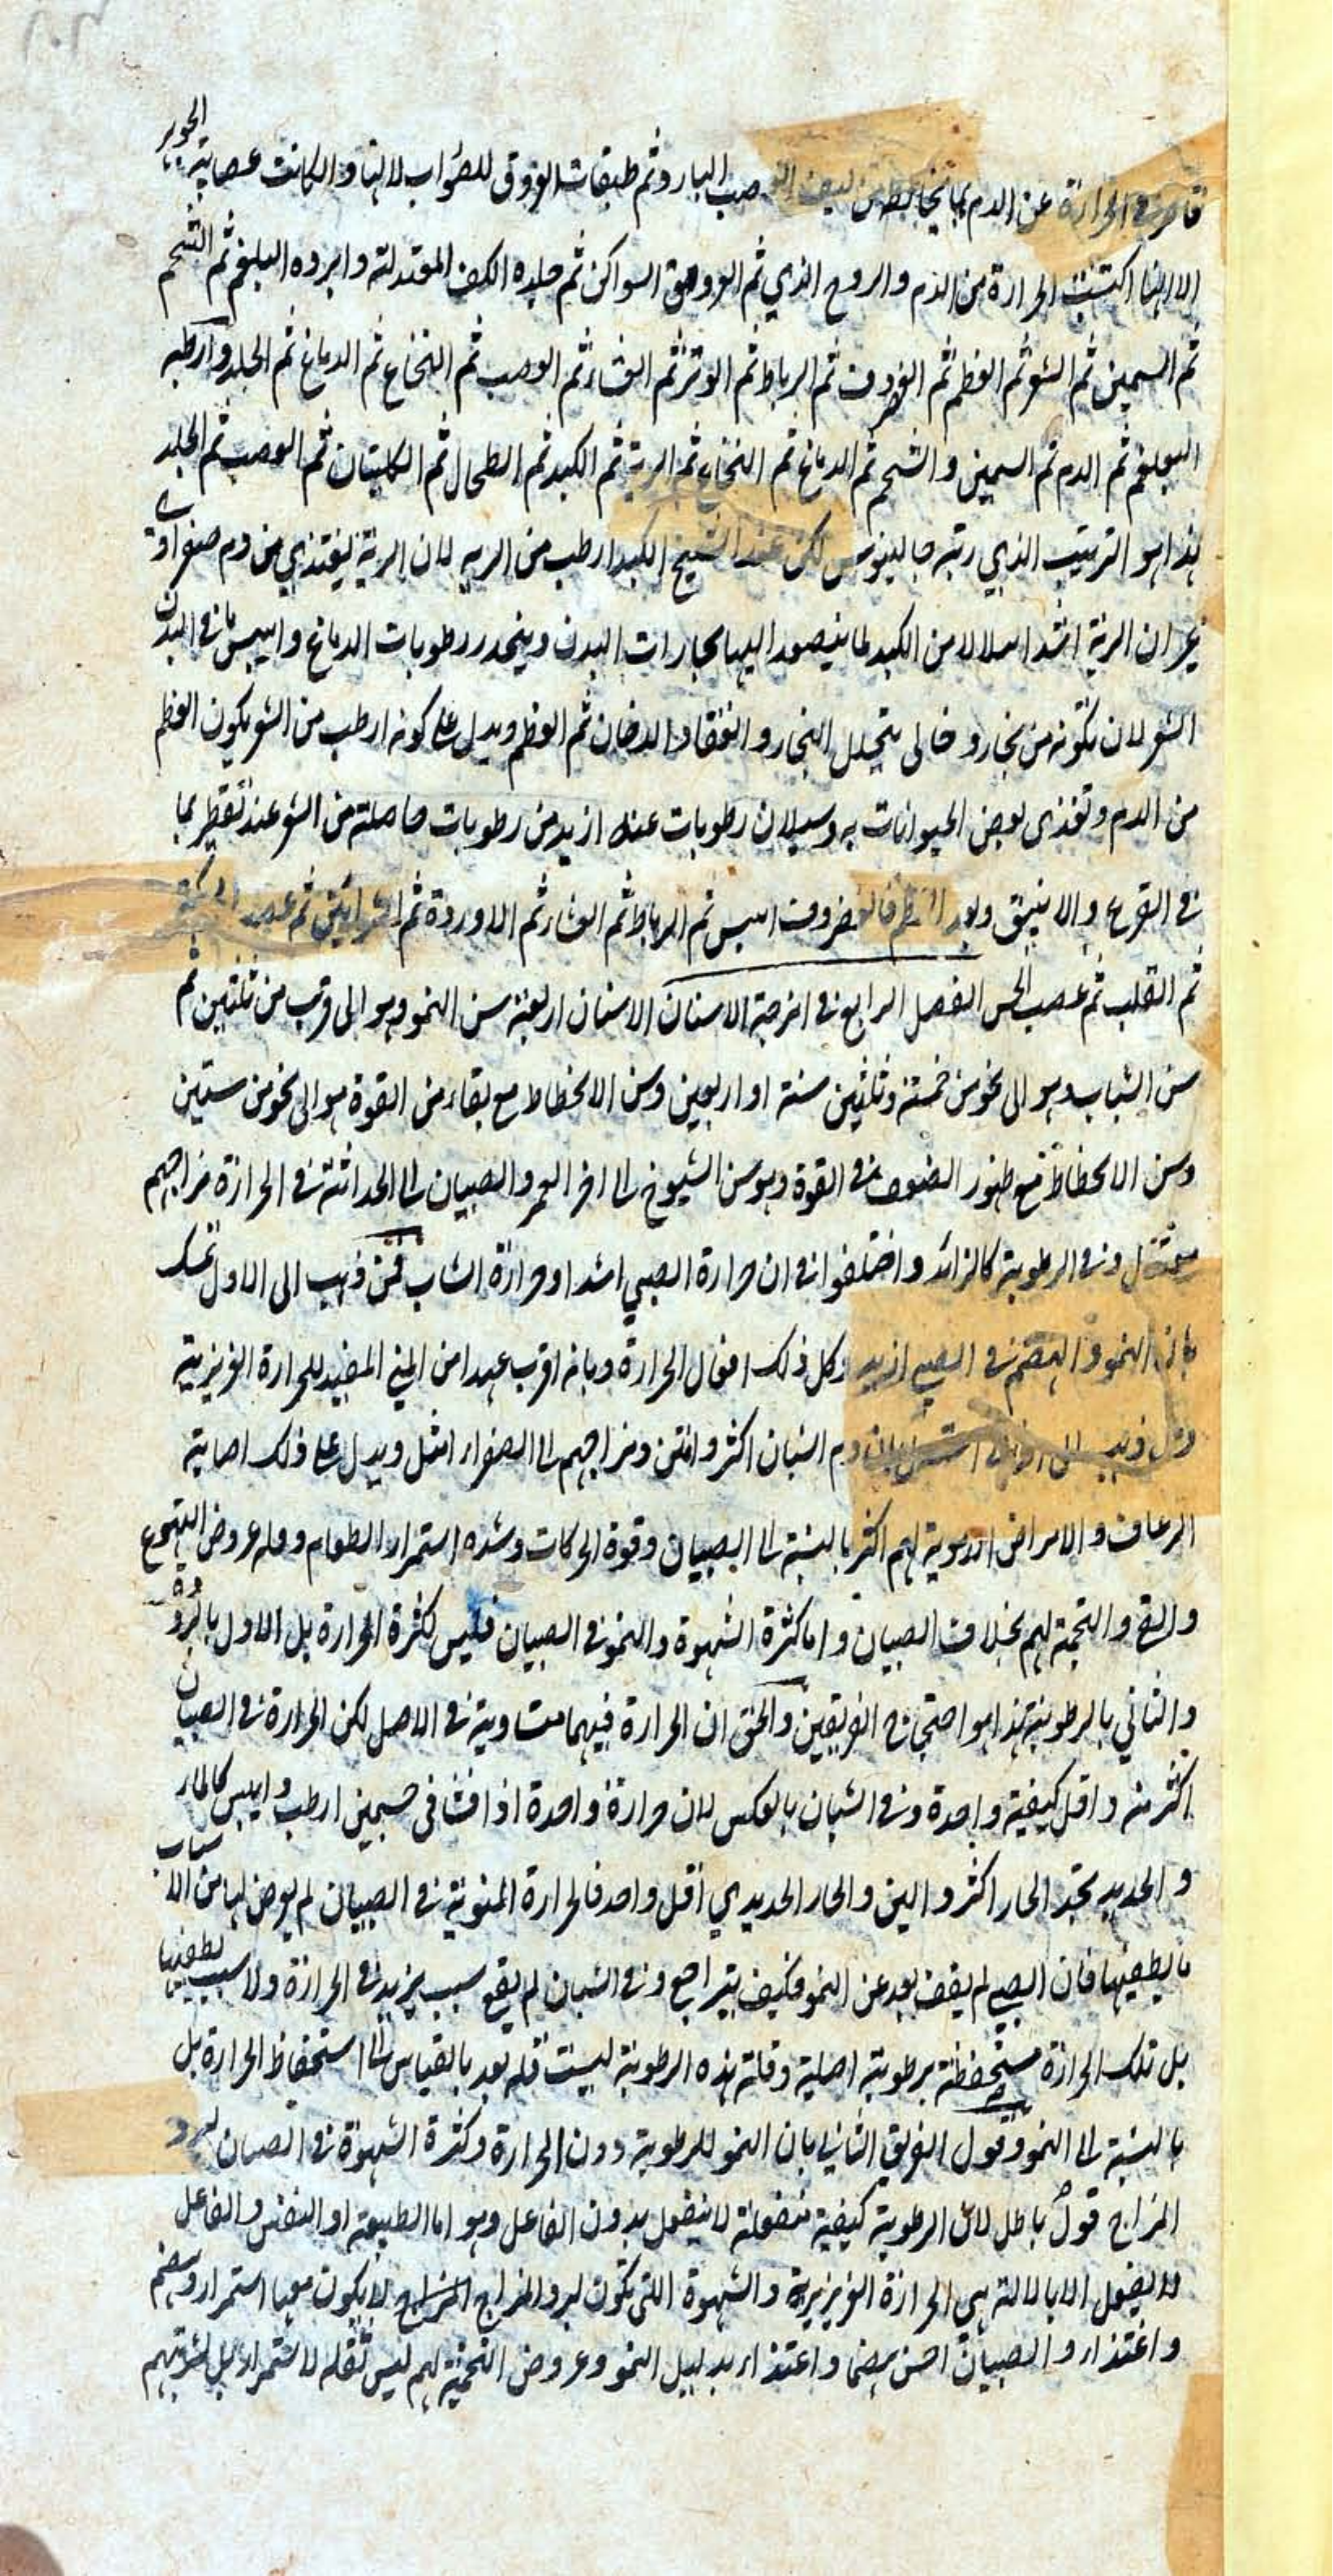 قاصرة في الحرارة عن الدم بما يخالطه من ليف العصب البارد ثم طبقات العروق للضوارب لانها وان كانت عصبانية الجوهر
الا انها اكتسبت الحرارة من الدم والروح الذي ثم العروق السواكن ثم جلدة الكف المعتدلة وابرده البلغم ثم الشحم
ثم السمين ثم الشعر ثم العظم ثم الغضروف ثم الرباط ثم الوتر ثم الغشاء ثم العصب ثم النخاع ثم الدماغ ثم الجلد وارطبه
البلغم ثم الدم ثم السمين والشحم ثم الدماغ ثم النخاع ثم الرية ثم الكبد ثم الطحال ثم الكليتان ثم العصب ثم الجلد
هذا هو الترتيب الذي رتبه جالينوس لكن عند الشيخ الكبد ارطب من الرية لان الرية يغتذي من دم صفراوي
غير ان الرية اشد ابتلالا من الكبد لما يتصعد اليها بخارات البدن وينحدر رطوبات الدماغ وايبس ما في البدن
الشعر لان تكونه من بخار دخاني يتحلل البخار وانعقاد الدخان ثم العظم ويدل على كونه ارطب من الشعر يكون العظم
من الدم وتغذى بعض الحيوانات به وسيلان رطوبات عنه ازيد من رطوبات حاصلة من الشعر عند تقطيرهما
في القرع والانبيق وبعد العظم فالغضروف ايبس ثم الرباط ثم الغشاء ثم الاوردة ثم الشرائين ثم عصب الحركة
ثم القلب ثم عصب الحس الفصل الرابع في امزجة الاسنان الاسنان اربعة سن النمو وهو الى قرب من ثلثين ثم
سن الشباب وهو الى نحو من خمسة وثلثين سنة او اربعين وسن الانحطاط مع بقاء من القوة هو الى نحو من ستين
وسن الانحطاط مع ظهور الضعف في القوة وهو سن الشيوخ الى اخر العمر والصبيان الى الحداثة في الحرارة مزاجهم
معتدل وفي الرطوبة كالزائد واختلفوا في ان حرارة الصبي اشد او حرارة الشاب فمن ذهب الى الاول تمسك
بان النمو والهضم في الصبي ازيد وكل ذلك افعال الحرارة وبانه اقرب عهدا من المني المفيد للحرارة الغريزية
ومن ذهب الى الثاني استدل بان دم الشبان اكثر وامتن ومزاجهم الى الصفراء اميل ويدل على ذلك اصابة
الرعاف والامراض الدموية لهم اكثر بالنسبة الى الصبيان وقوة الحركات وشدة استمراء الطعام وقلة عروض التهوع
والقيء والتخمة لهم بخلاف الصبيان واما كثرة الشهوة والنمو في الصبيان فليس لكثرة الحرارة بل الاول بالبرودة
والثاني بالرطوبة هذا هو احتجاج الفريقين والحق ان الحرارة فيهما متساوية في الاصل لكن الحرارة في الصبيان
اكثر منه واقل كيفية واحدة وفي الشبان بالعكس لان حرارة واحدة اذا فشا في جسمين ارطب وايبس كالماء
والحديد نجد الحار اكثر والين والحار الحديدي اقل واحد فالحرارة المنوية في الصبيان لم يعرض لها من الاسباب
ما يطفيها فان الصبي لم يقف بعد عن النمو فكيف يتراجع وفي الشبان لم يقع سبب يزيد في الحرارة ولا سبب يطفيها
بل تلك الحرارة مستحفظة برطوبة اصلية وقلة هذه الرطوبة ليست قلة تعد بالقياس الى استحفاظ الحرارة بل
بالنسبة الى النمو وقول الفريق الثاني بان النمو للرطوبة دون الحرارة وكثرة الشهوة في الصبيان لبرد
المزاج قول باطل لان الرطوبة كيفية منفعلة لا ينفعل بدون الفاعل وهو اما الطبيعة او النفس والفاعل
لا يفعل الا بالالة هي الحرارة الغريزية والشهوة التي تكون لبرد المزاج لا يكون معها استمراء وهضم
واغتذاء والصبيان احسن هضما واغتذاء بدليل النمو وعروض التخمة لهم ليس لقلة الاستمراء بل لشرههم